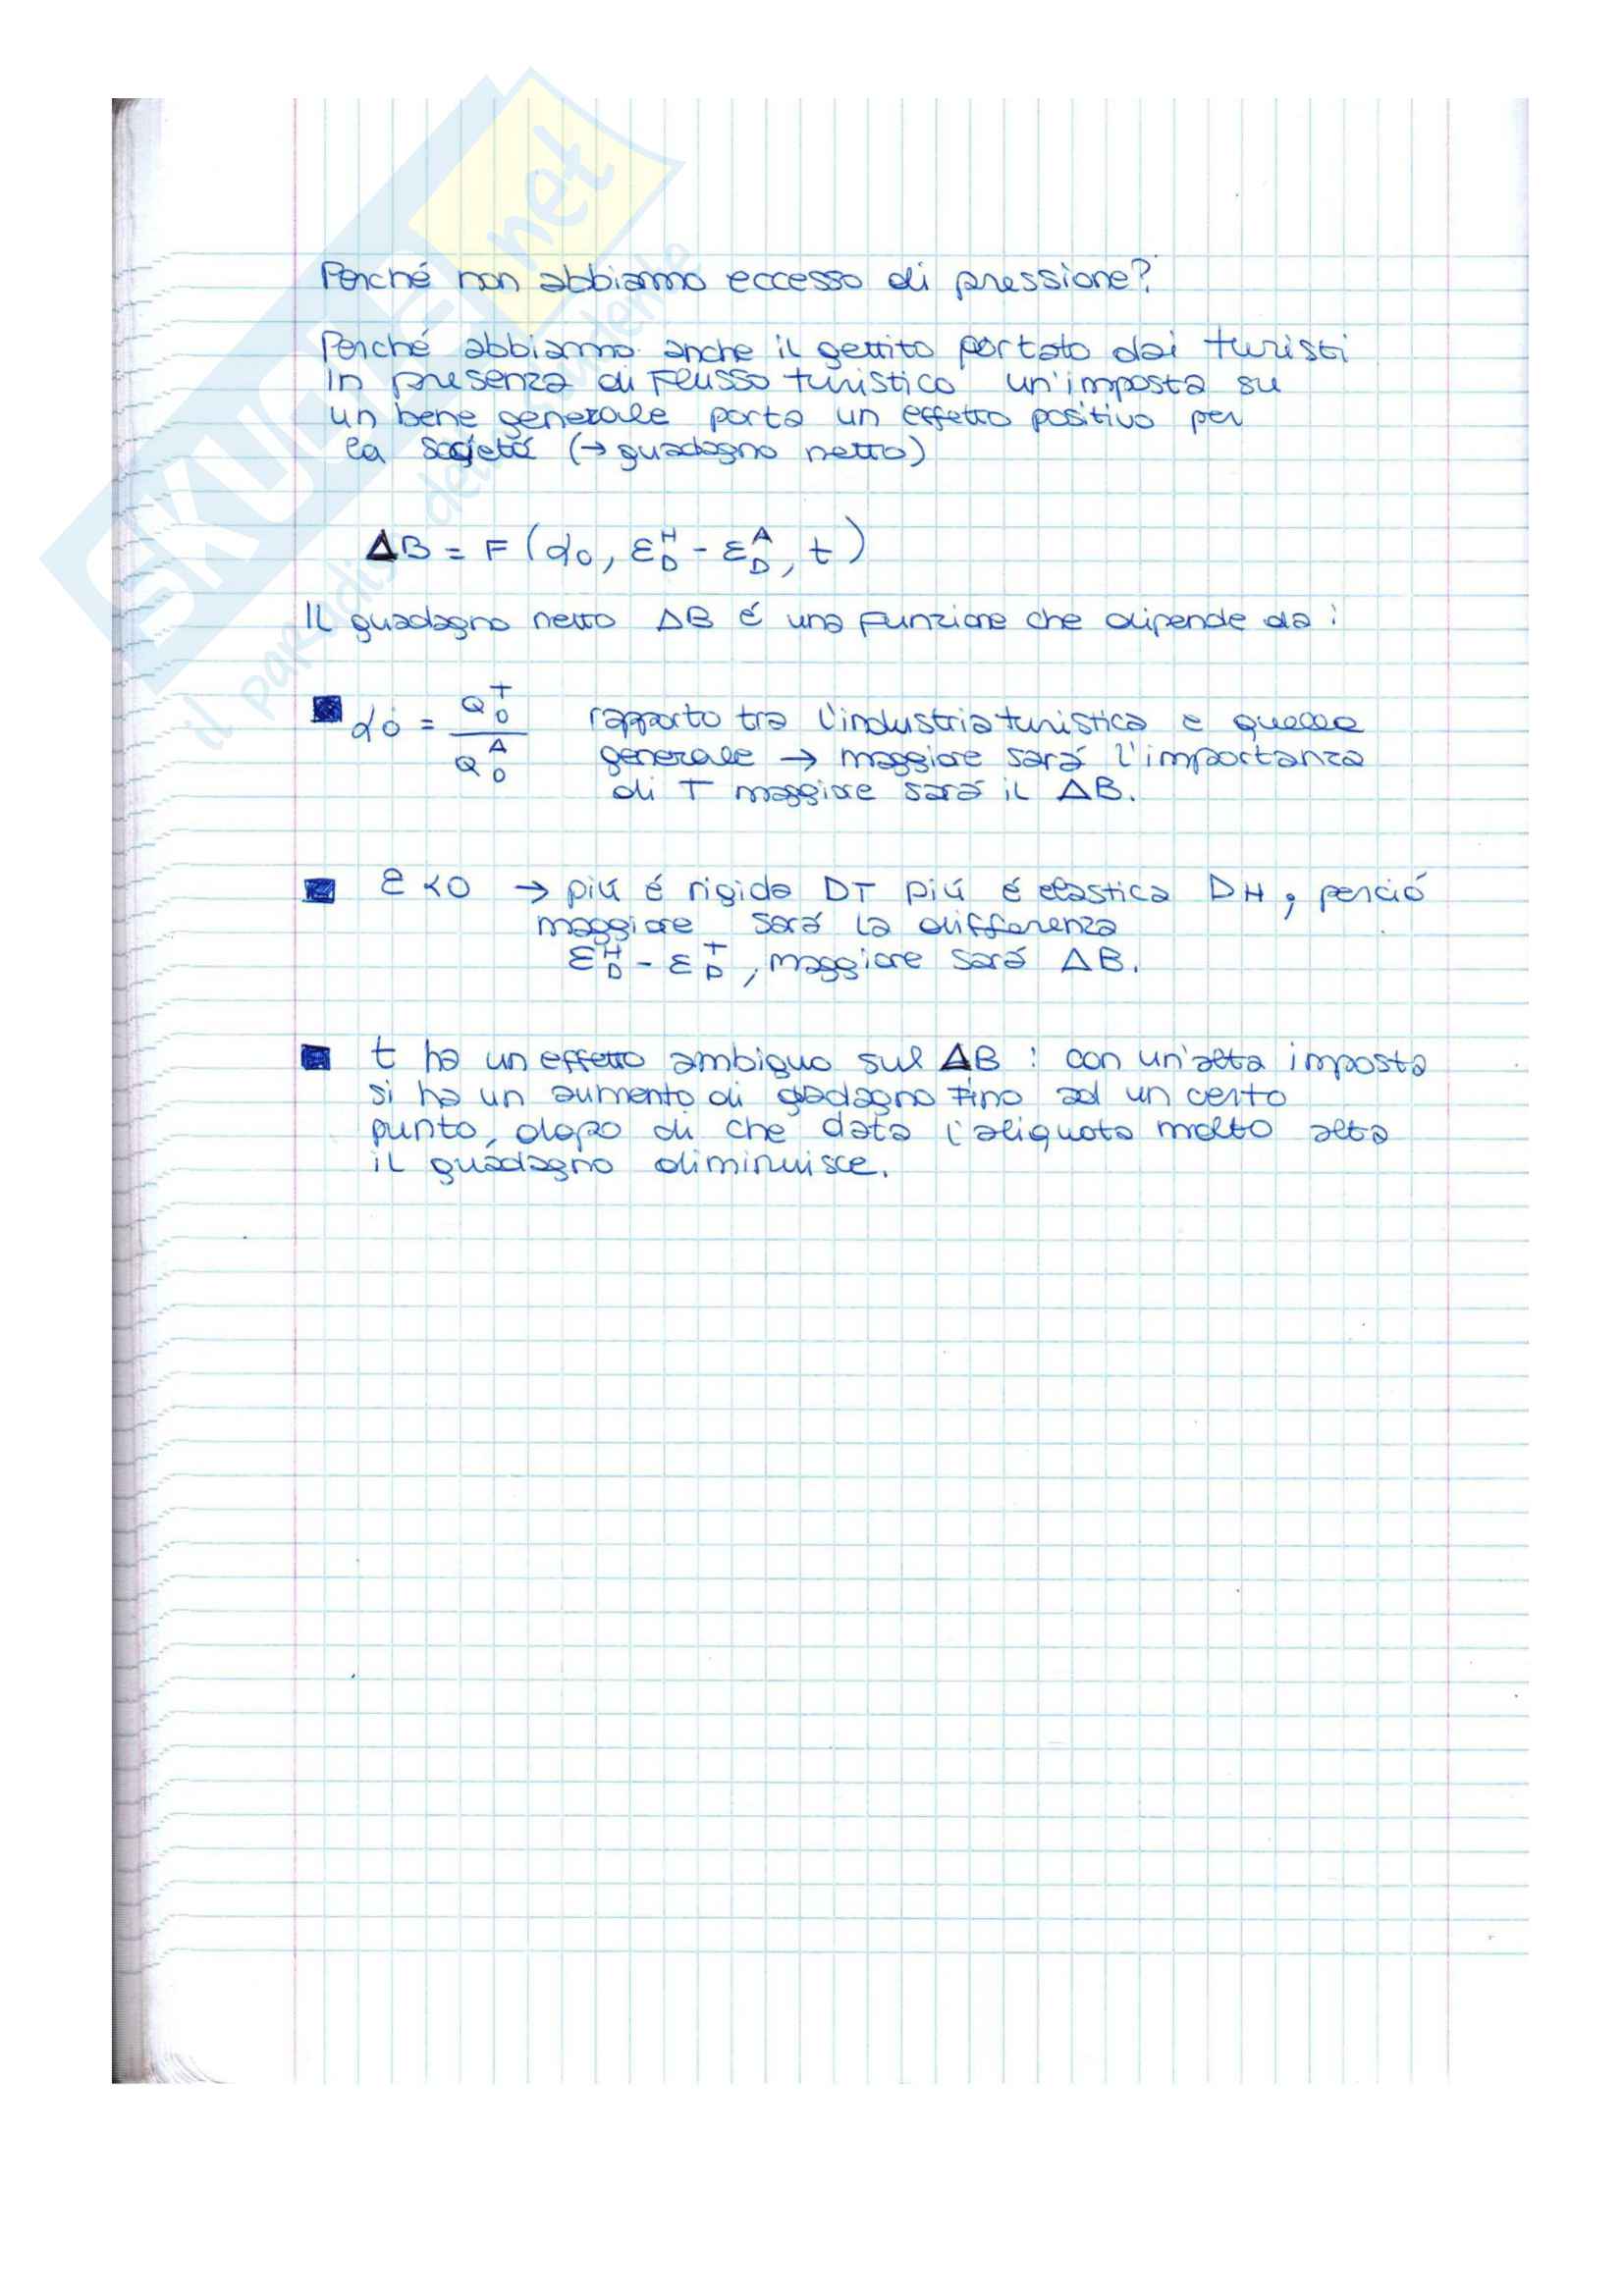 SKUOLA.net
il paradiso dello studente
Perché non abbiamo eccesso di pressione?
Perché abbiamo anche il gettito portato dai turisti
in presenza di flusso turistico un'imposta su
un bene generale porta un effetto positivo per
la società (→ guadagno netto)
ΔB = F (α₀, ε_D^H - ε_D^A, t)
Il guadagno netto ΔB é una funzione che dipende da:
■ α₀ = Q₀^T / Q₀^A rapporto tra l'industria turistica e quella
generale → maggiore sará l'importanza
di T maggiore sará il ΔB.
■ ε<0 → piú é rigida DT piú é elastica DH, perció
maggiore sará la differenza
ε_D^H - ε_D^T, maggiore sará ΔB.
■ t ha un effetto ambiguo sul ΔB: con un'alta imposta
si ha un aumento di guadagno fino ad un certo
punto, dopo di che data l'aliquota molto alta
il guadagno diminuisce.